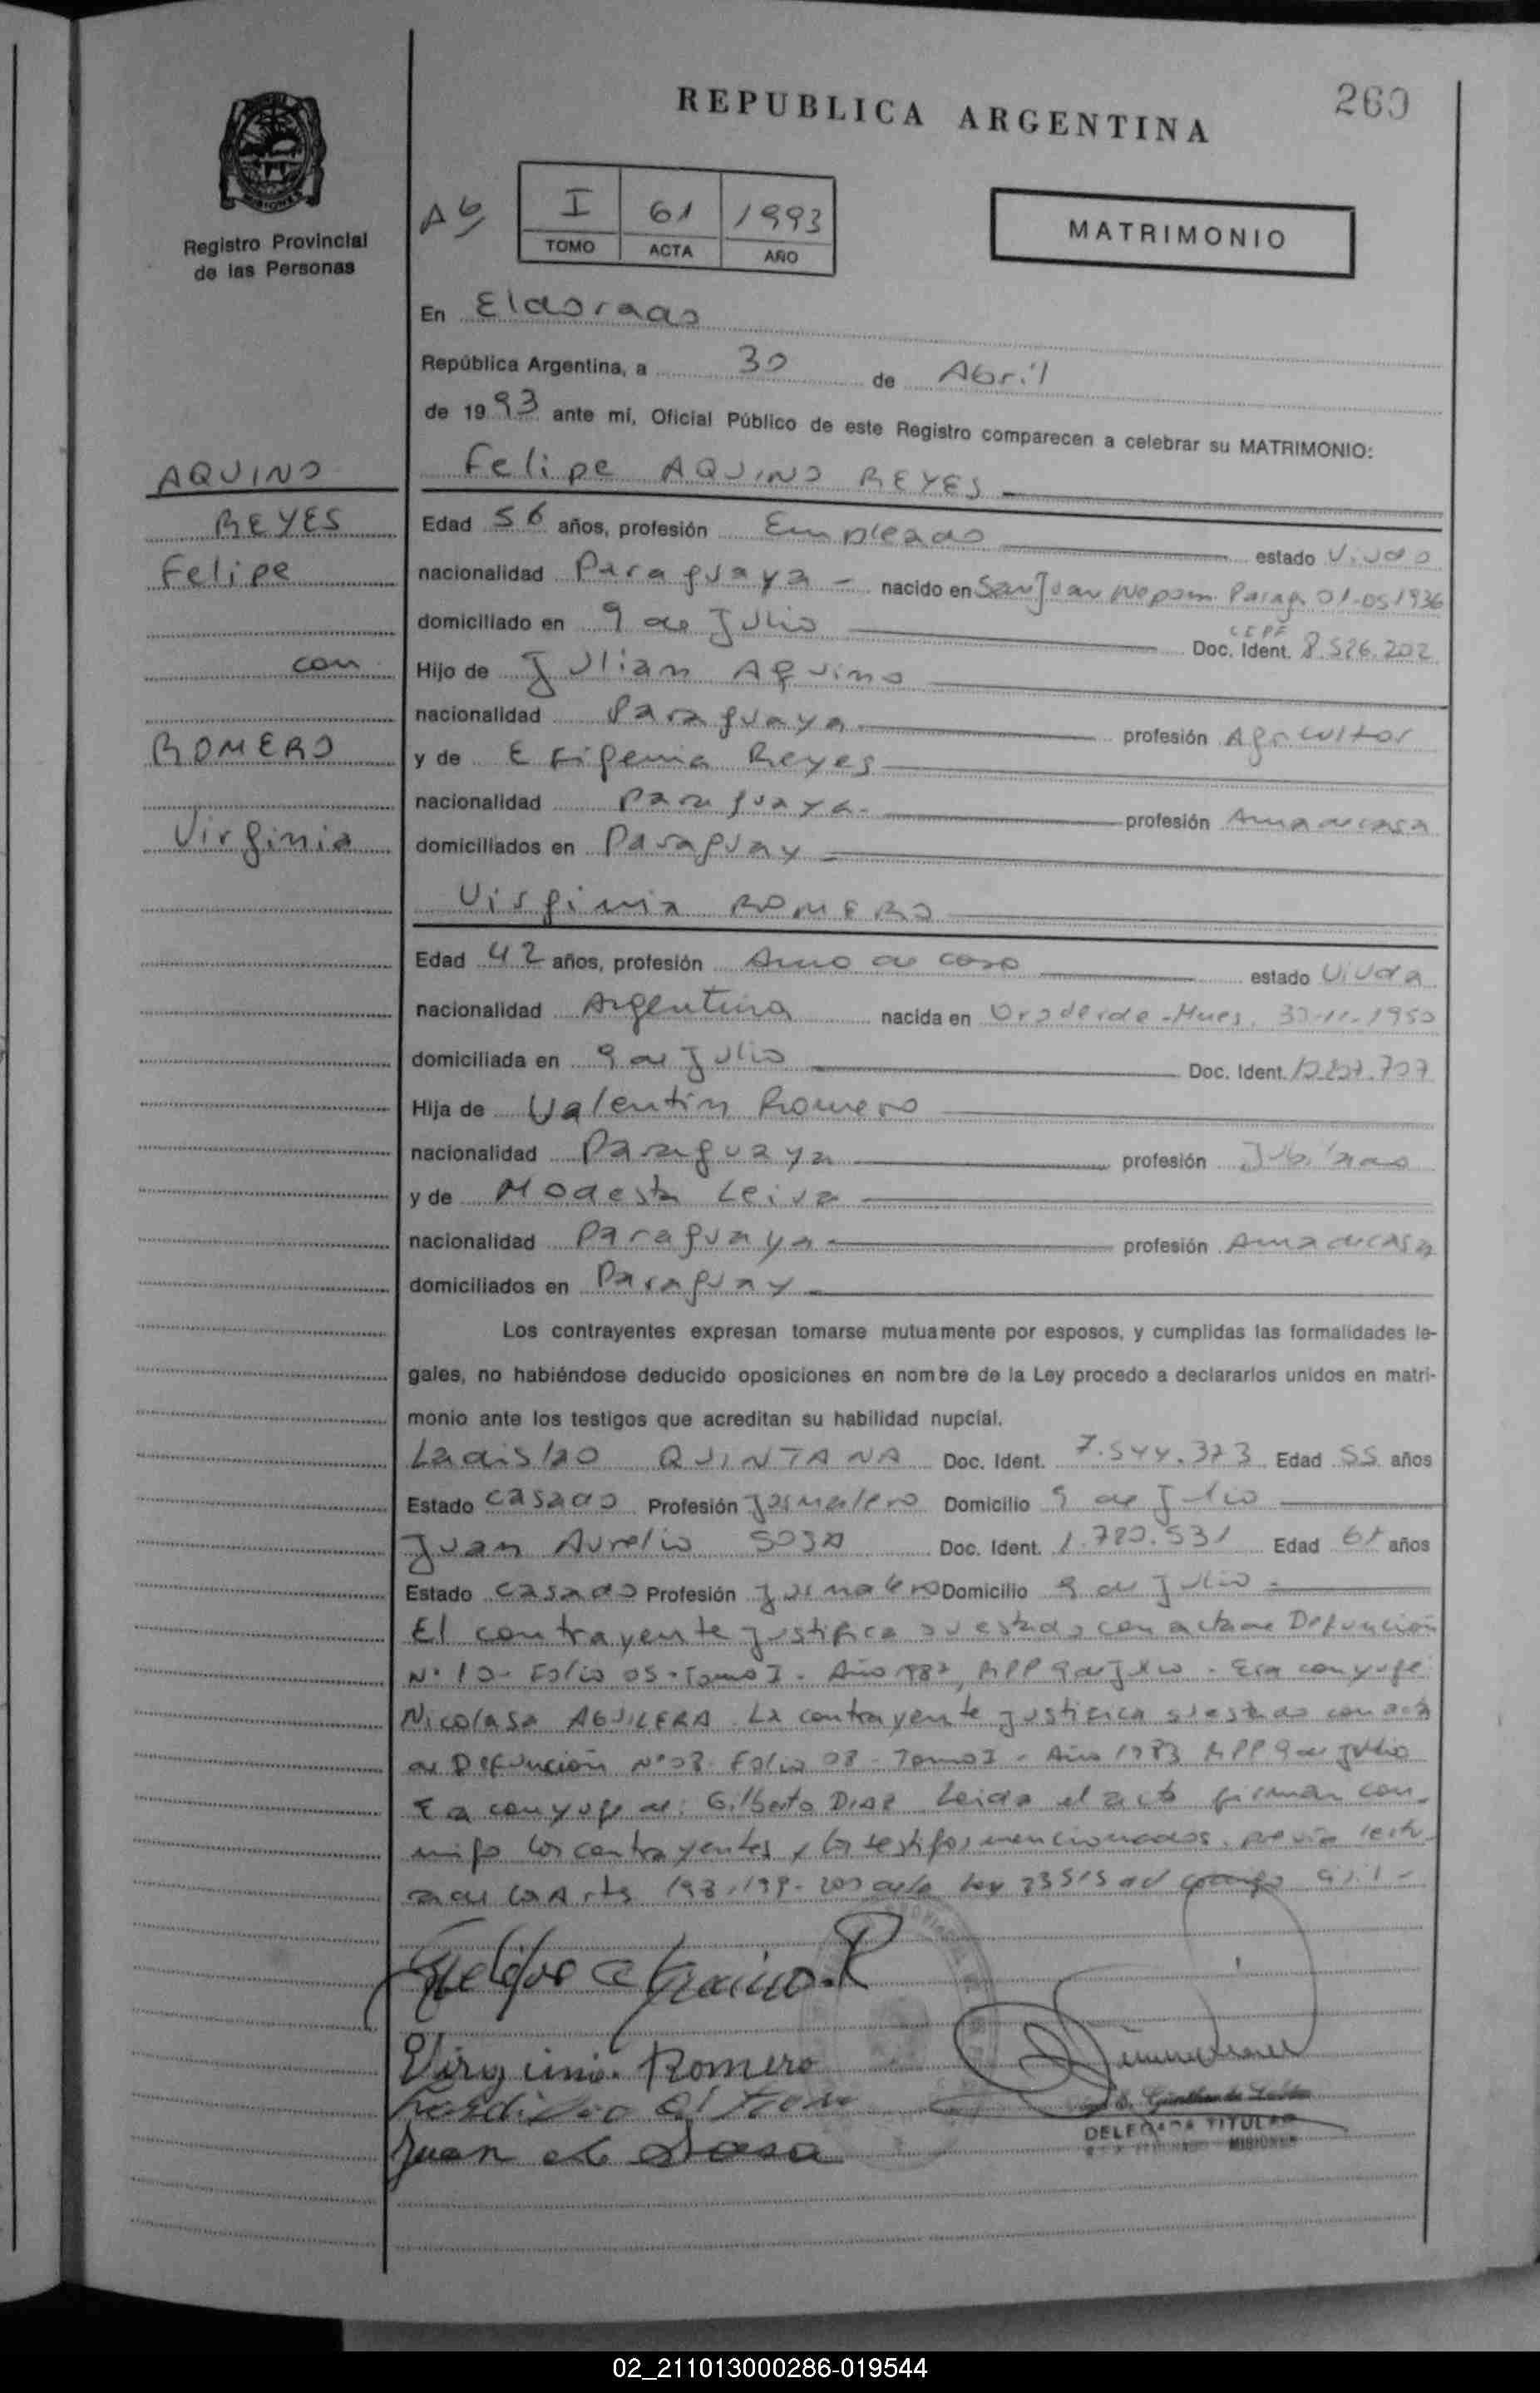 REPUBLICA ARGENTINA
260
MISIONES
Registro Provincial
de las Personas
Ab
I 61 1993
TOMO ACTA AÑO
MATRIMONIO
En Eldorado
República Argentina, a 30 de Abril
de 1993 ante mí, Oficial Público de este Registro comparecen a celebrar su MATRIMONIO:
AQUINO
REYES
Felipe
con
ROMERO
Virginia
Felipe AQUINO REYES
Edad 56 años, profesión Empleado estado Viudo
nacionalidad Paraguaya - nacido en San Juan Nepom. Parag. 01-05-1936
domiciliado en 9 de Julio Doc. Ident. 8.526.202
Hijo de Julian Aquino
nacionalidad Paraguaya profesión Agricultor
y de Efigenia Reyes
nacionalidad Paraguaya profesión Ama de casa
domiciliados en Paraguay
Virginia ROMERO
Edad 42 años, profesión Ama de casa estado Viuda
nacionalidad Argentina nacida en 1950
domiciliada en 9 de Julio Doc. Ident.
Hija de Valentin Romero
nacionalidad Paraguaya profesión Jubilado
y de Modesta Leiva
nacionalidad Paraguaya profesión Ama de casa
domiciliados en Paraguay
Los contrayentes expresan tomarse mutuamente por esposos, y cumplidas las formalidades le-
gales, no habiéndose deducido oposiciones en nombre de la Ley procedo a declararlos unidos en matri-
monio ante los testigos que acreditan su habilidad nupcial.
Ladislao QUINTANA Doc. Ident. 7.544.373 Edad 55 años
Estado casado Profesión Jornalero Domicilio 9 de Julio
Juan Aurelio SOSA Doc. Ident. 1.780.531 Edad años
Estado casado Profesión jornalero Domicilio 9 de Julio -
El contrayente justifica su estado con acta de Defunción
Nº 10 - Folio 05 - Tomo I - Año RPP 9 de Julio - Era conyuge
Nicolasa AGUILERA. La contrayente justifica su estado con acta
de Defunción Nº 08 - Folio 08 - Tomo I - Año 1983 RPP 9 de Julio
Era conyuge de: Gilberto Diaz Leida el acta firman con-
migo los contrayentes y los testigos mencionados, previa lectu-
ra de los Arts 198-199-200 de la Ley 23515 del Codigo Civil -
Felipe Aquino. R
Virginia Romero
Juan Sosa
DELEGADA TITULAR
MISIONES
02_211013000286-019544